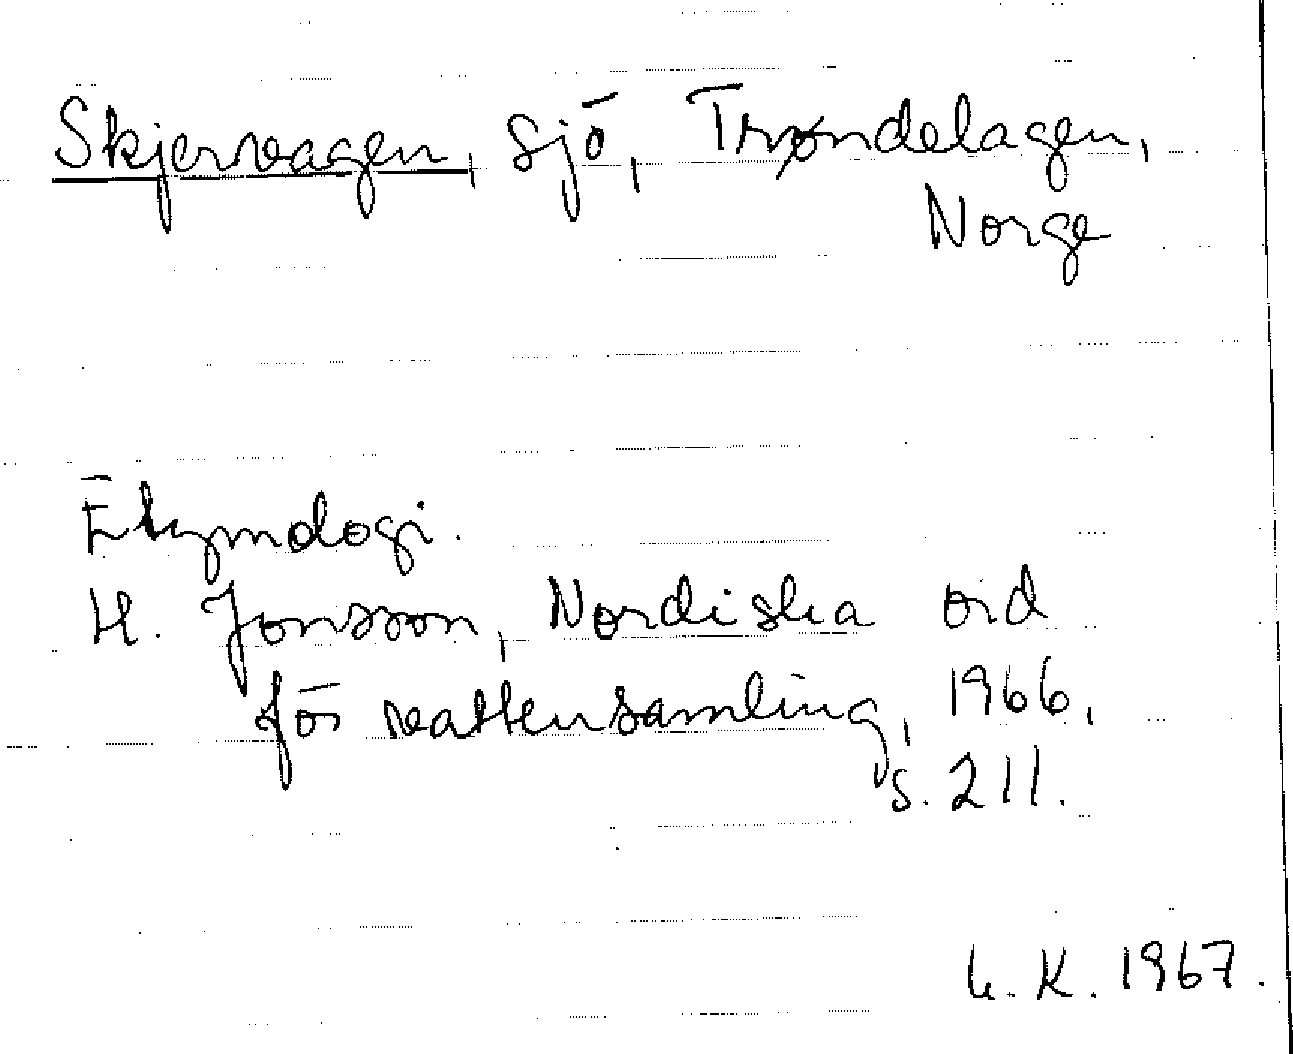 Skjervagen, sjö, Trøndelagen,
Norge
Etymologi.
H. Jonsson, Nordiska ord
för vattensamling, 1966,
s. 211.
L. K. 1967.